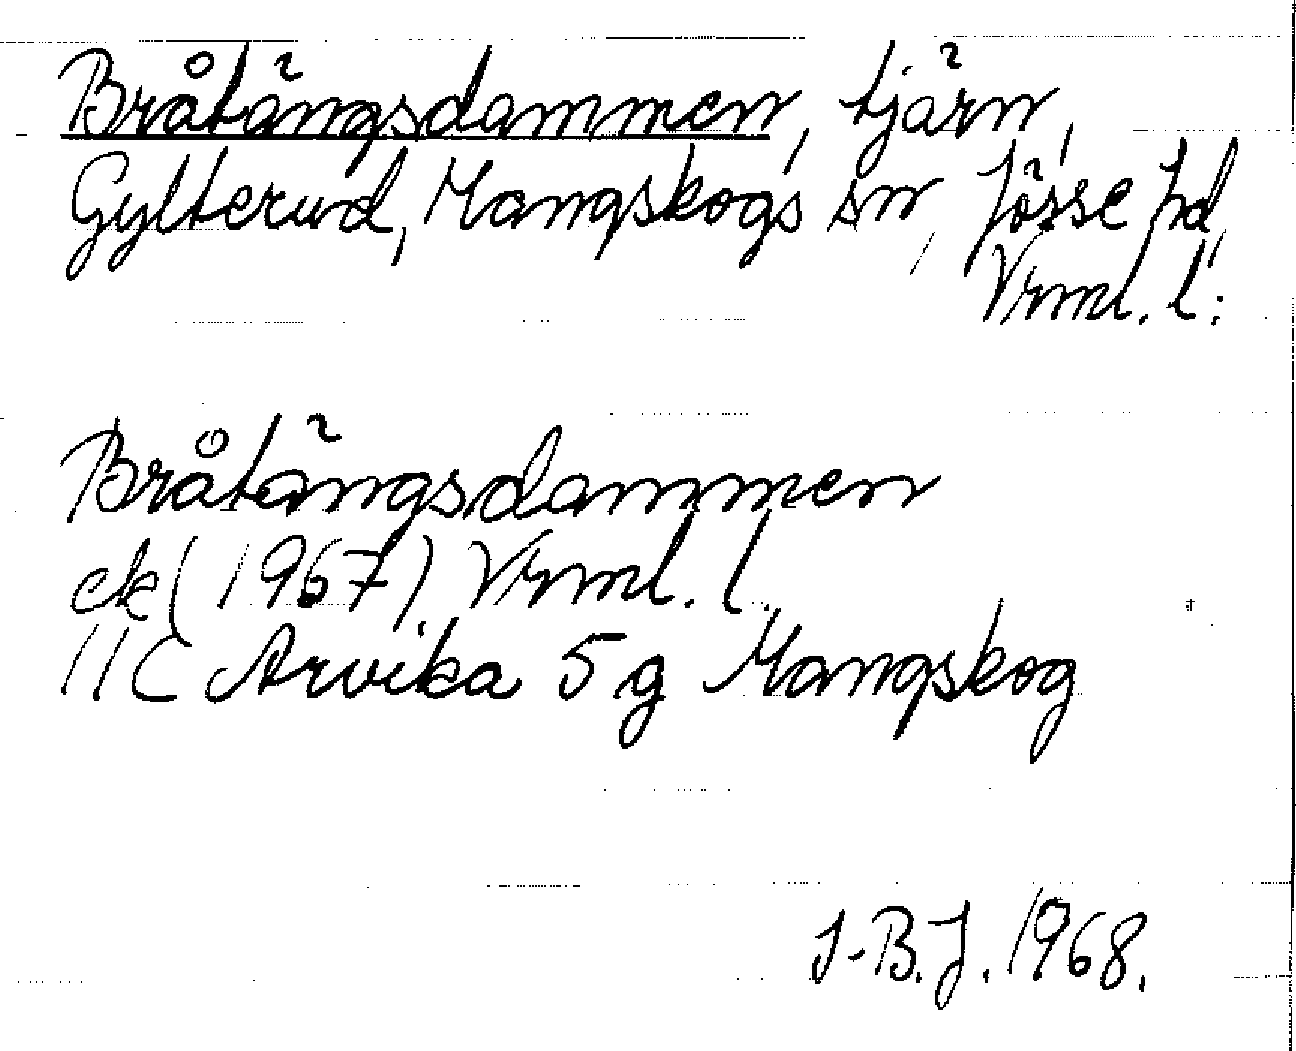 Bråtängsdammen, tjärn,
Gylterud, Mangskogs sn, Jösse hd,
Vrml. l:
Bråtängsdammen
ek (1967) Vrml. l.
11C Arvika 5 g Mangskog
I-B.J. 1968.